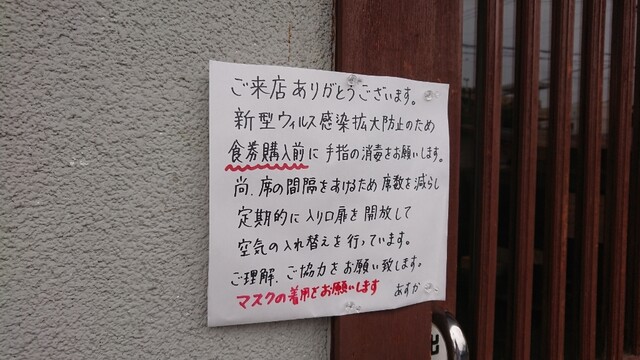 ご来店ありがとうございます。
新型ウィルス感染拡大防止のため
食券購入前に手指の消毒をお願いします。
尚、席の間隔をあけるため席数を減らし
定期的に入り口扉を開放して
空気の入れ替えを行っています。
ご理解、ご協力をお願い致します。
マスクの着用をお願いします あすか